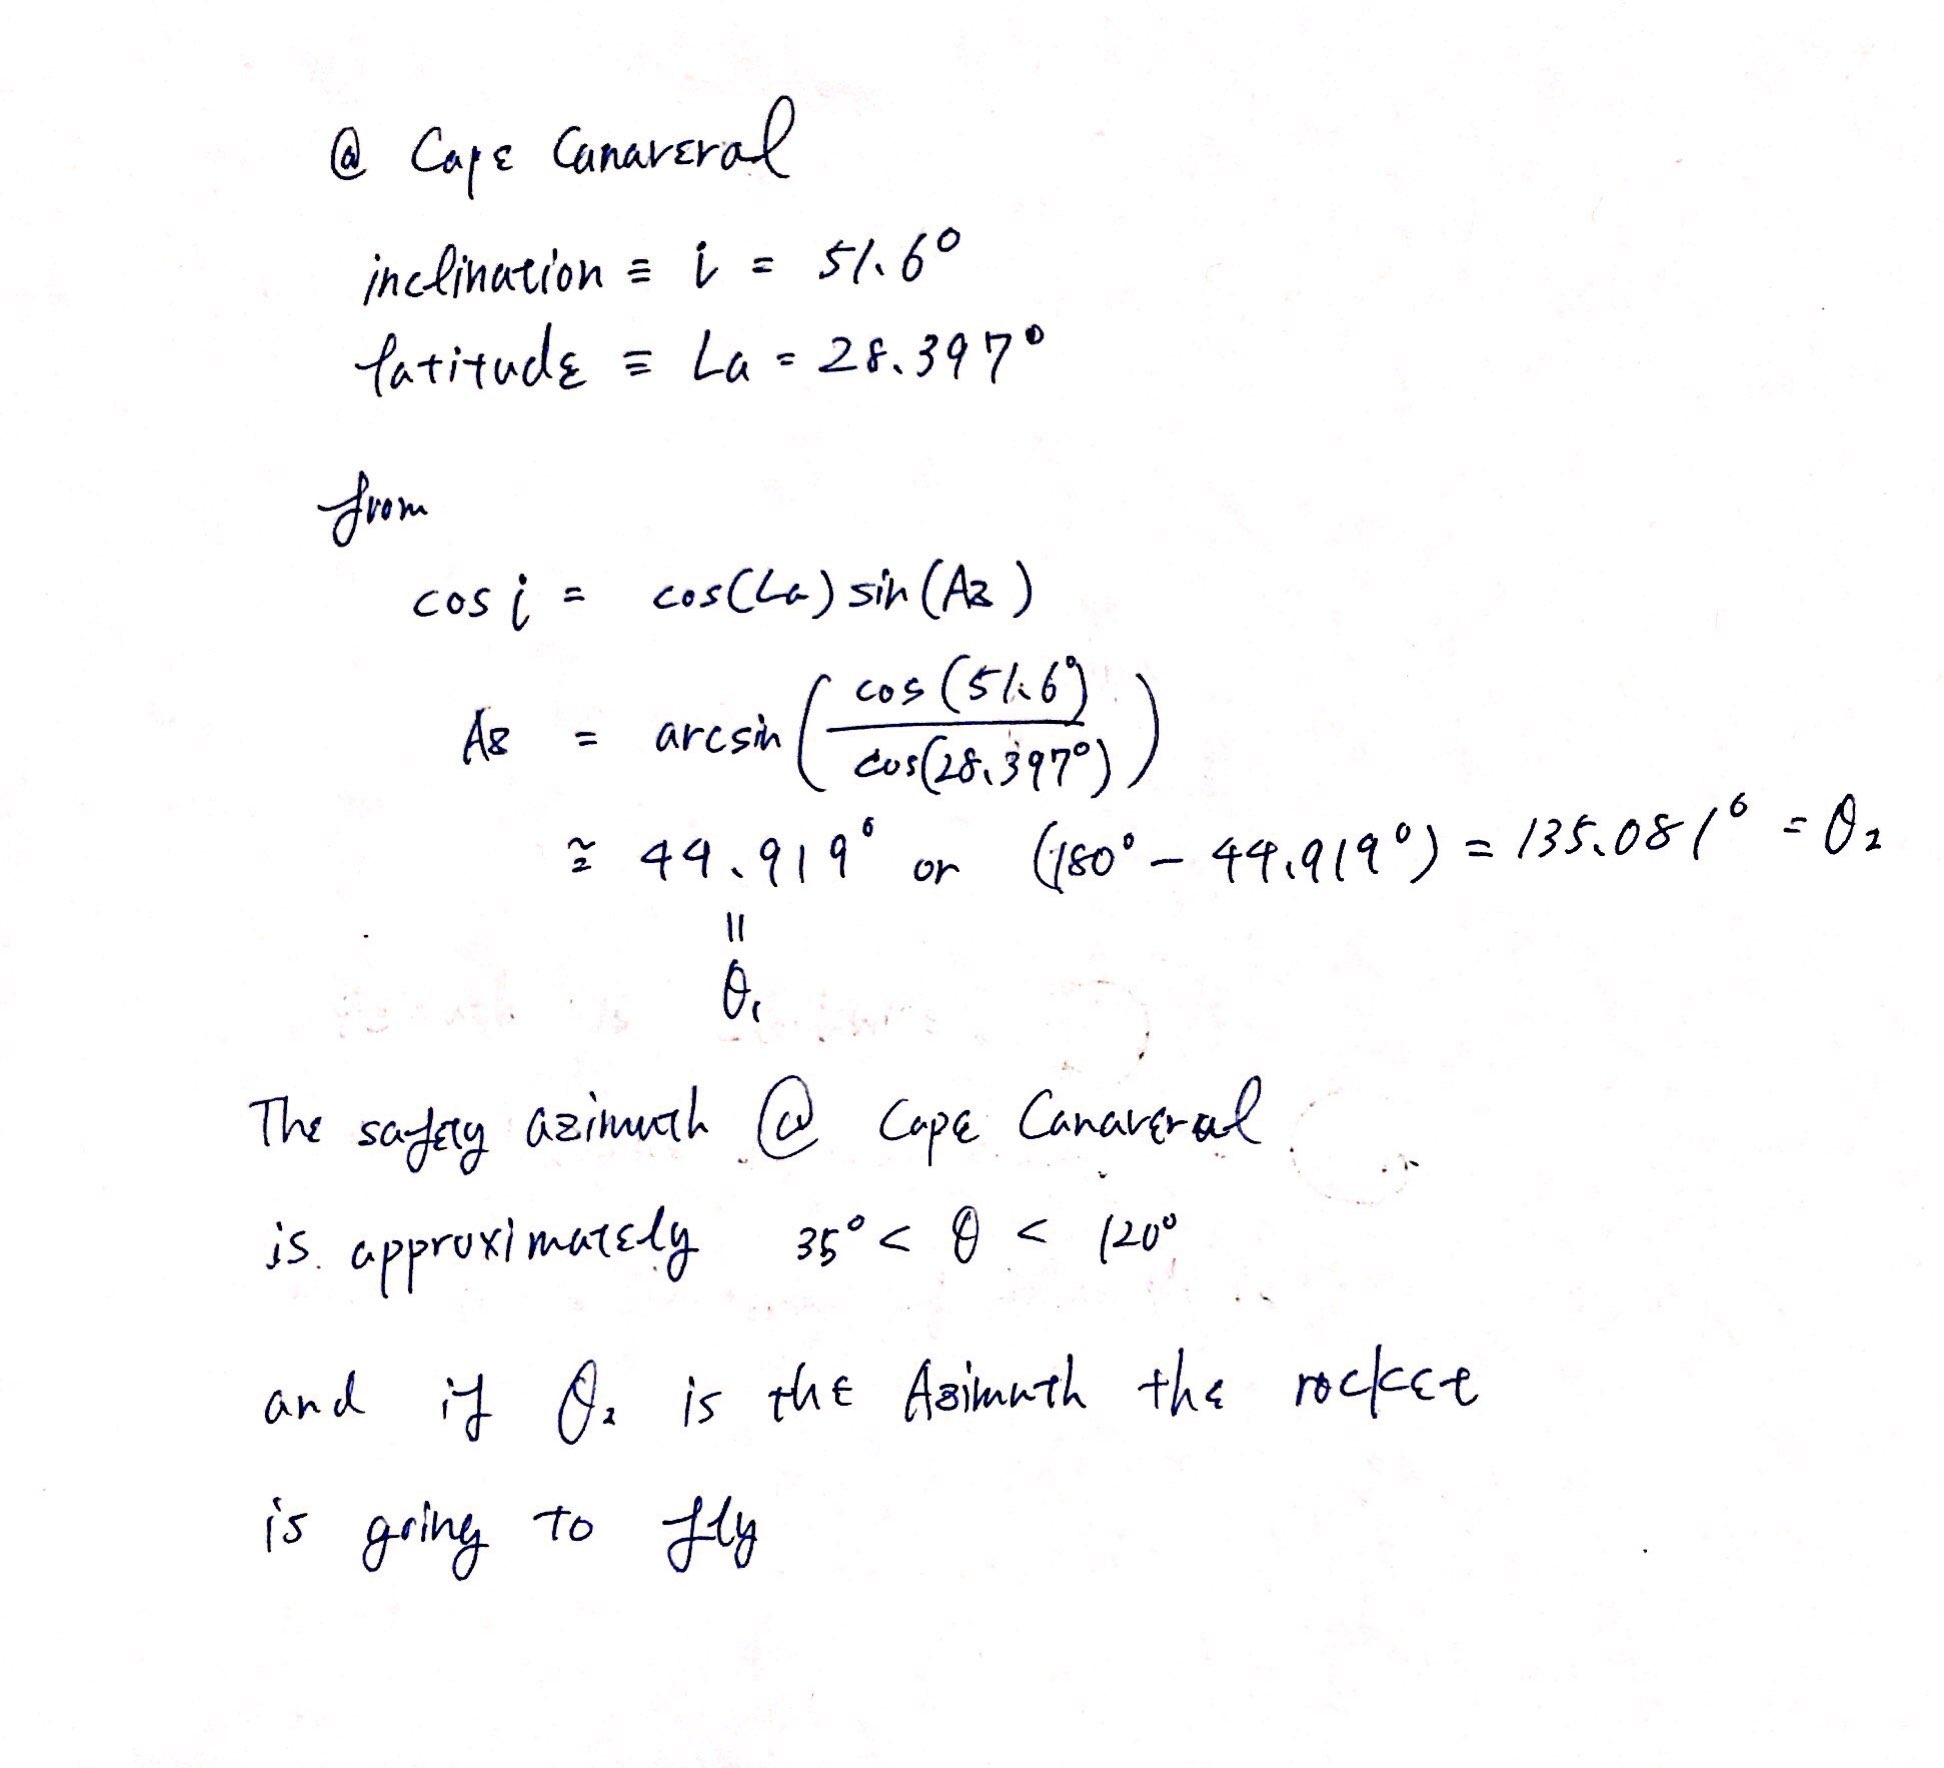 @ Cape Canaveral
inclination ≡ i = 51.6°
latitude ≡ La = 28.397°
from
cos i = cos(La) sin(Az)
Az = arcsin(cos(51.6°)/cos(28.397°))
≅ 44.919° or (180° - 44.919°) = 135.081° = θ₂
||
θ₁
The safety azimuth @ Cape Canaveral
is approximately 35° < θ < 120°
and if θ₂ is the Azimuth the rocket
is going to fly